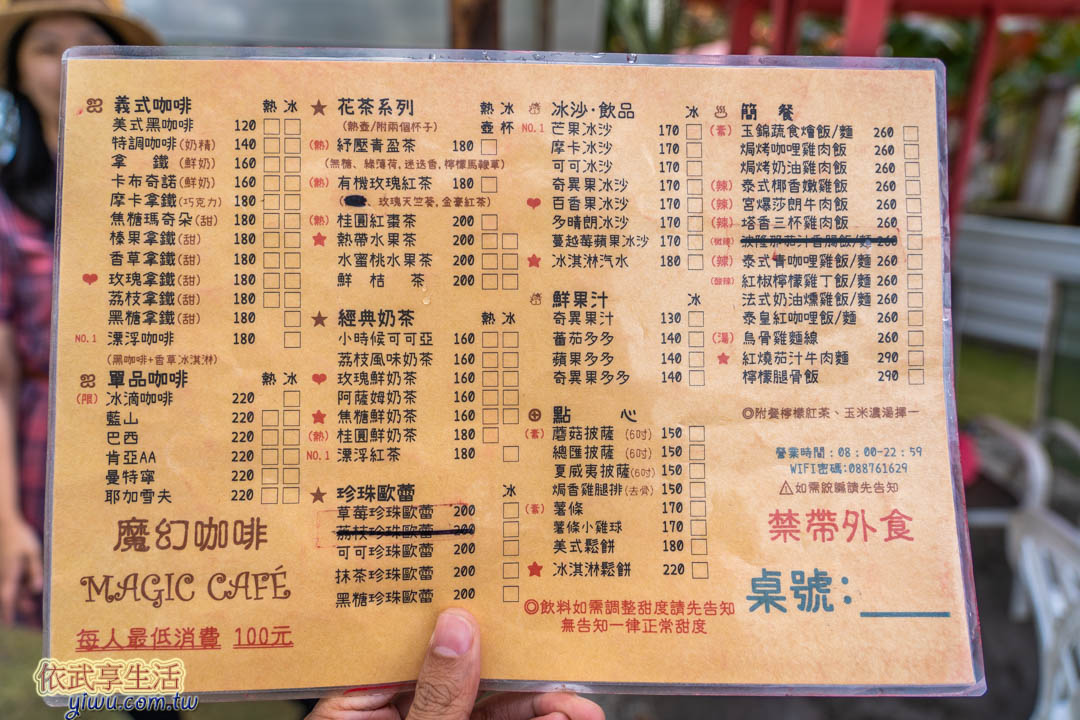 義式咖啡 熱 冰
美式黑咖啡 120
特調咖啡(奶精) 140
拿鐵(鮮奶) 160
卡布奇諾(鮮奶) 160
摩卡拿鐵(巧克力) 180
焦糖瑪奇朵(甜) 180
榛果拿鐵(甜) 180
香草拿鐵(甜) 180
玫瑰拿鐵(甜) 180
荔枝拿鐵(甜) 180
黑糖拿鐵(甜) 180
NO.1 漂浮咖啡 180
(黑咖啡+香草冰淇淋)
單品咖啡 熱 冰
(限) 冰滴咖啡 220
藍山 220
巴西 220
肯亞AA 220
曼特寧 220
耶加雪夫 220
魔幻咖啡
MAGIC CAFÉ
每人最低消費 100元
花茶系列 熱 冰
(熱壺/附兩個杯子) 壺 杯
(熱) 紓壓青盈茶 180
(無糖、綠薄荷,迷迭香,檸檬馬鞭草)
(熱) 有機玫瑰紅茶 180
、玫瑰天竺葵,金萱紅茶)
(熱) 桂圓紅棗茶 200
熱帶水果茶 200
水蜜桃水果茶 200
鮮桔茶 200
經典奶茶 熱 冰
小時候可可亞 160
荔枝風味奶茶 160
玫瑰鮮奶茶 160
阿薩姆奶茶 160
焦糖鮮奶茶 160
(熱) 桂圓鮮奶茶 180
NO.1 漂浮紅茶 180
珍珠歐蕾 冰
草莓珍珠歐蕾 200
荔枝珍珠歐蕾 200
可可珍珠歐蕾 200
抹茶珍珠歐蕾 200
黑糖珍珠歐蕾 200
冰沙·飲品 冰
NO.1 芒果冰沙 170
摩卡冰沙 170
可可冰沙 170
奇異果冰沙 170
百香果冰沙 170
多晴朗冰沙 170
蔓越莓蘋果冰沙 170
冰淇淋汽水 180
鮮果汁 冰
奇異果汁 130
蕃茄多多 140
蘋果多多 140
奇異果多多 140
點心
(素) 蘑菇披薩(6吋) 150
總匯披薩(6吋) 150
夏威夷披薩(6吋) 150
焗香雞腿排(去骨) 150
(素) 薯條 170
薯條小雞球 170
美式鬆餅 180
冰淇淋鬆餅 220
◎飲料如需調整甜度請先告知
無告知一律正常甜度
簡餐
(素) 玉錦蔬食燴飯/麵 260
焗烤咖哩雞肉飯 260
焗烤奶油雞肉飯 260
(辣) 泰式椰香嫩雞飯 260
(辣) 宮爆莎朗牛肉飯 260
(辣) 塔香三杯雞肉飯 260
(微辣) 波隆那茄汁香腸飯/麵 260
(辣) 泰式青咖哩雞飯/麵 260
(酸辣) 紅椒檸檬雞丁飯/麵 260
法式奶油燻雞飯/麵 260
泰皇紅咖哩飯/麵 260
(湯) 烏骨雞麵線 260
紅燒茄汁牛肉麵 290
檸檬腿骨飯 290
◎附餐檸檬紅茶、玉米濃湯擇一
營業時間:08:00-22:59
WIFI密碼:088761629
⚠如需脫鞋請先告知
禁帶外食
桌號:
依武享生活
yiwu.com.tw